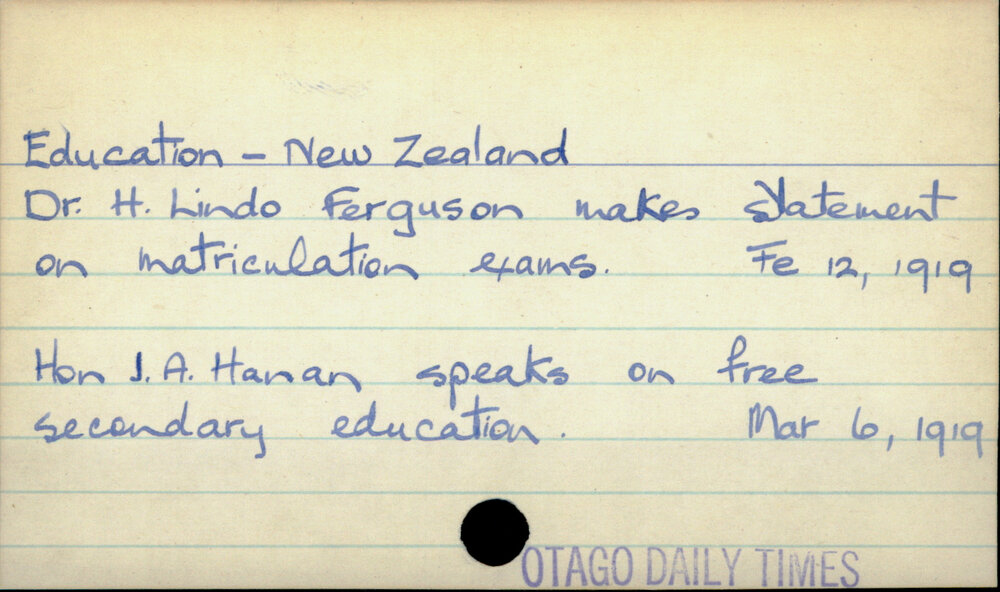 Education - New Zealand
Dr. H. Lindo Ferguson makes statement
on matriculation exams. Fe 12, 1919
Hon J. A. Hanan speaks on free
secondary education. Mar 6, 1919
OTAGO DAILY TIMES